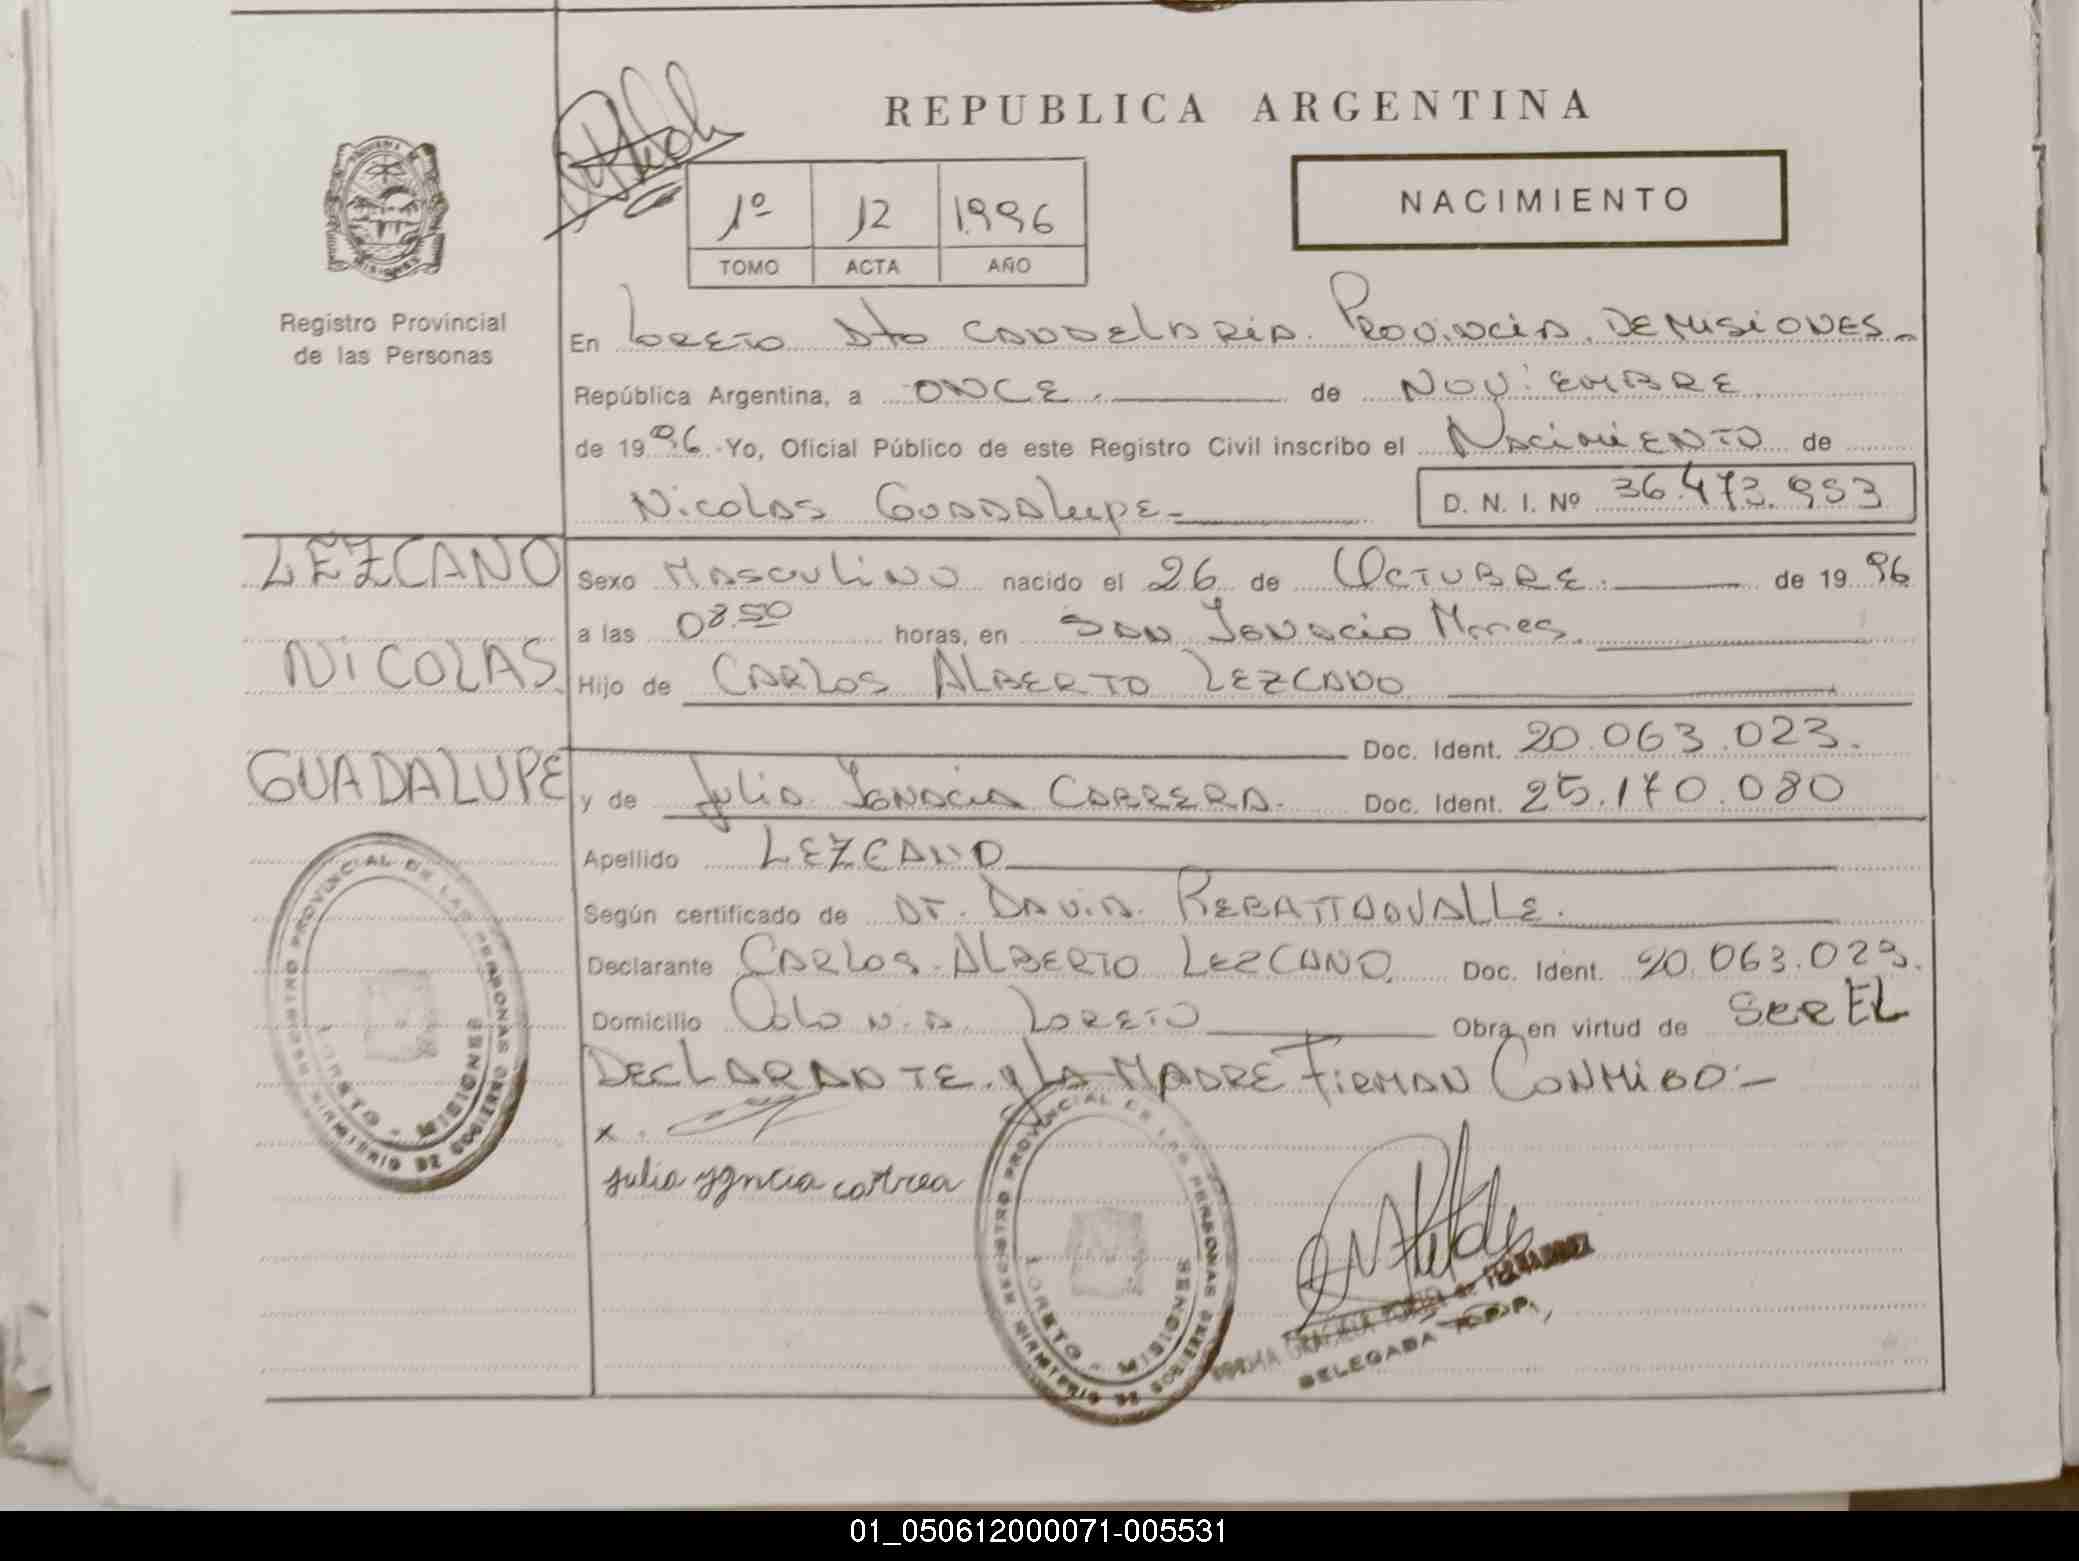 REPUBLICA ARGENTINA
NACIMIENTO
1º 12 1996
TOMO ACTA AÑO
Registro Provincial
de las Personas
En Loreto Dto Candelaria. Provincia. De Misiones.
República Argentina, a once. de Noviembre
de 1996. Yo, Oficial Público de este Registro Civil inscribo el Nacimiento de
Nicolas Guadalupe
D. N. I. Nº 36.473.953
LEZCANO
NICOLAS.
GUADALUPE
Sexo Masculino nacido el 26 de Octubre. de 1996
a las 08.50 horas, en San Ignacio Mnes.
Hijo de Carlos Alberto Lezcano
Doc. Ident. 20.063.023.
y de Julia Ignacia Doc. Ident. 25.170.080
Apellido LEZCANO
Según certificado de DT. David
Declarante Carlos Alberto Lezcano. Doc. Ident. 20.063.023.
Domicilio Colonia Loreto Obra en virtud de ser EL
Declarante y La Madre Firman Conmigo.-
x.
julia ygncia
REGISTRO PROVINCIAL DE LAS PERSONAS
MINISTERIO DE GOBIERNO
LORETO - MISIONES
REGISTRO PROVINCIAL DE LAS PERSONAS
MINISTERIO DE GOBIERNO
LORETO - MISIONES
GRACIELA de FERNANDEZ
DELEGADA
01_050612000071-005531